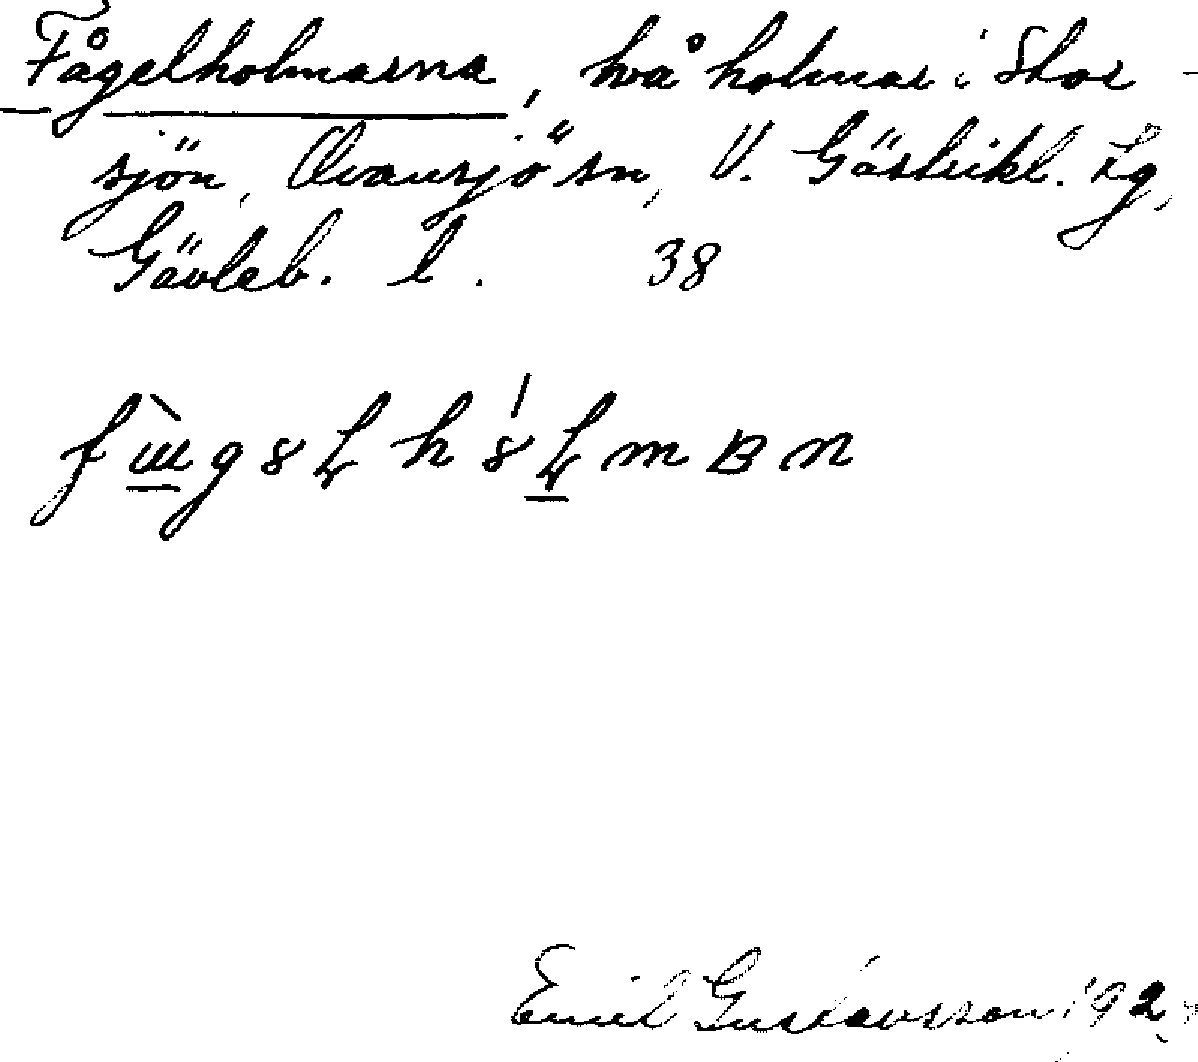 Fågelholmarna, två holmar i Stor-
sjön, Ovansjö sn, V. Gästrikl. tg,
Gävleb. l. 38
Emil Gustavsson 192